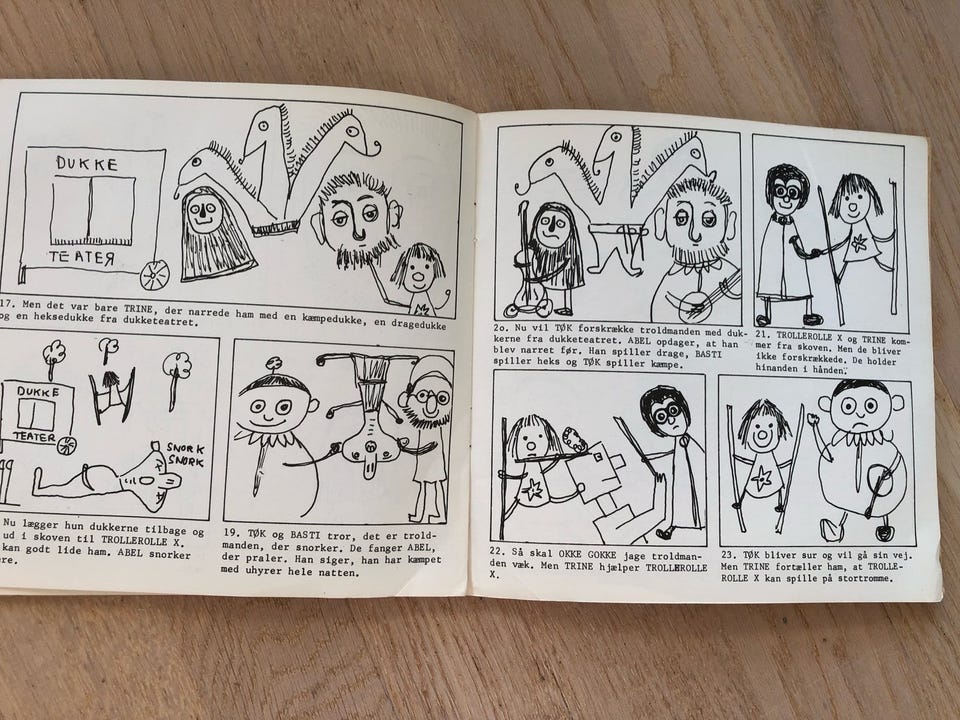 DUKKE
TEATER
17. Men det var bare TRINE, der narrede ham med en kæmpedukke, en dragedukke
og en heksedukke fra dukketeatret.
DUKKE
TEATER
SNORK
SNORK
Nu lægger hun dukkerne tilbage og
ud i skoven til TROLLEROLLE X.
kan godt lide ham. ABEL snorker
19. TØK og BASTI tror, det er trold-
manden, der snorker. De fanger ABEL,
der praler. Han siger, han har kæmpet
med uhyrer hele natten.
2o. Nu vil TØK forskrække troldmanden med duk-
kerne fra dukketeatret. ABEL opdager, at han
blev narret før. Han spiller drage, BASTI
spiller heks og TØK spiller kæmpe.
21. TROLLEROLLE X og TRINE kom-
mer fra skoven. Men de bliver
ikke forskrækkede. De holder
hinanden i hånden.
22. Så skal OKKE GOKKE jage troldman-
den væk. Men TRINE hjælper TROLLEROLLE
X.
23. TØK bliver sur og vil gå sin vej.
Men TRINE fortæller ham, at TROLLE-
ROLLE X kan spille på stortromme.